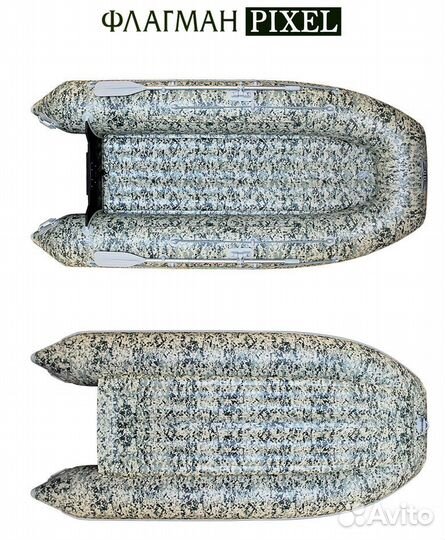 ФЛАГМАН PIXEL
Avito